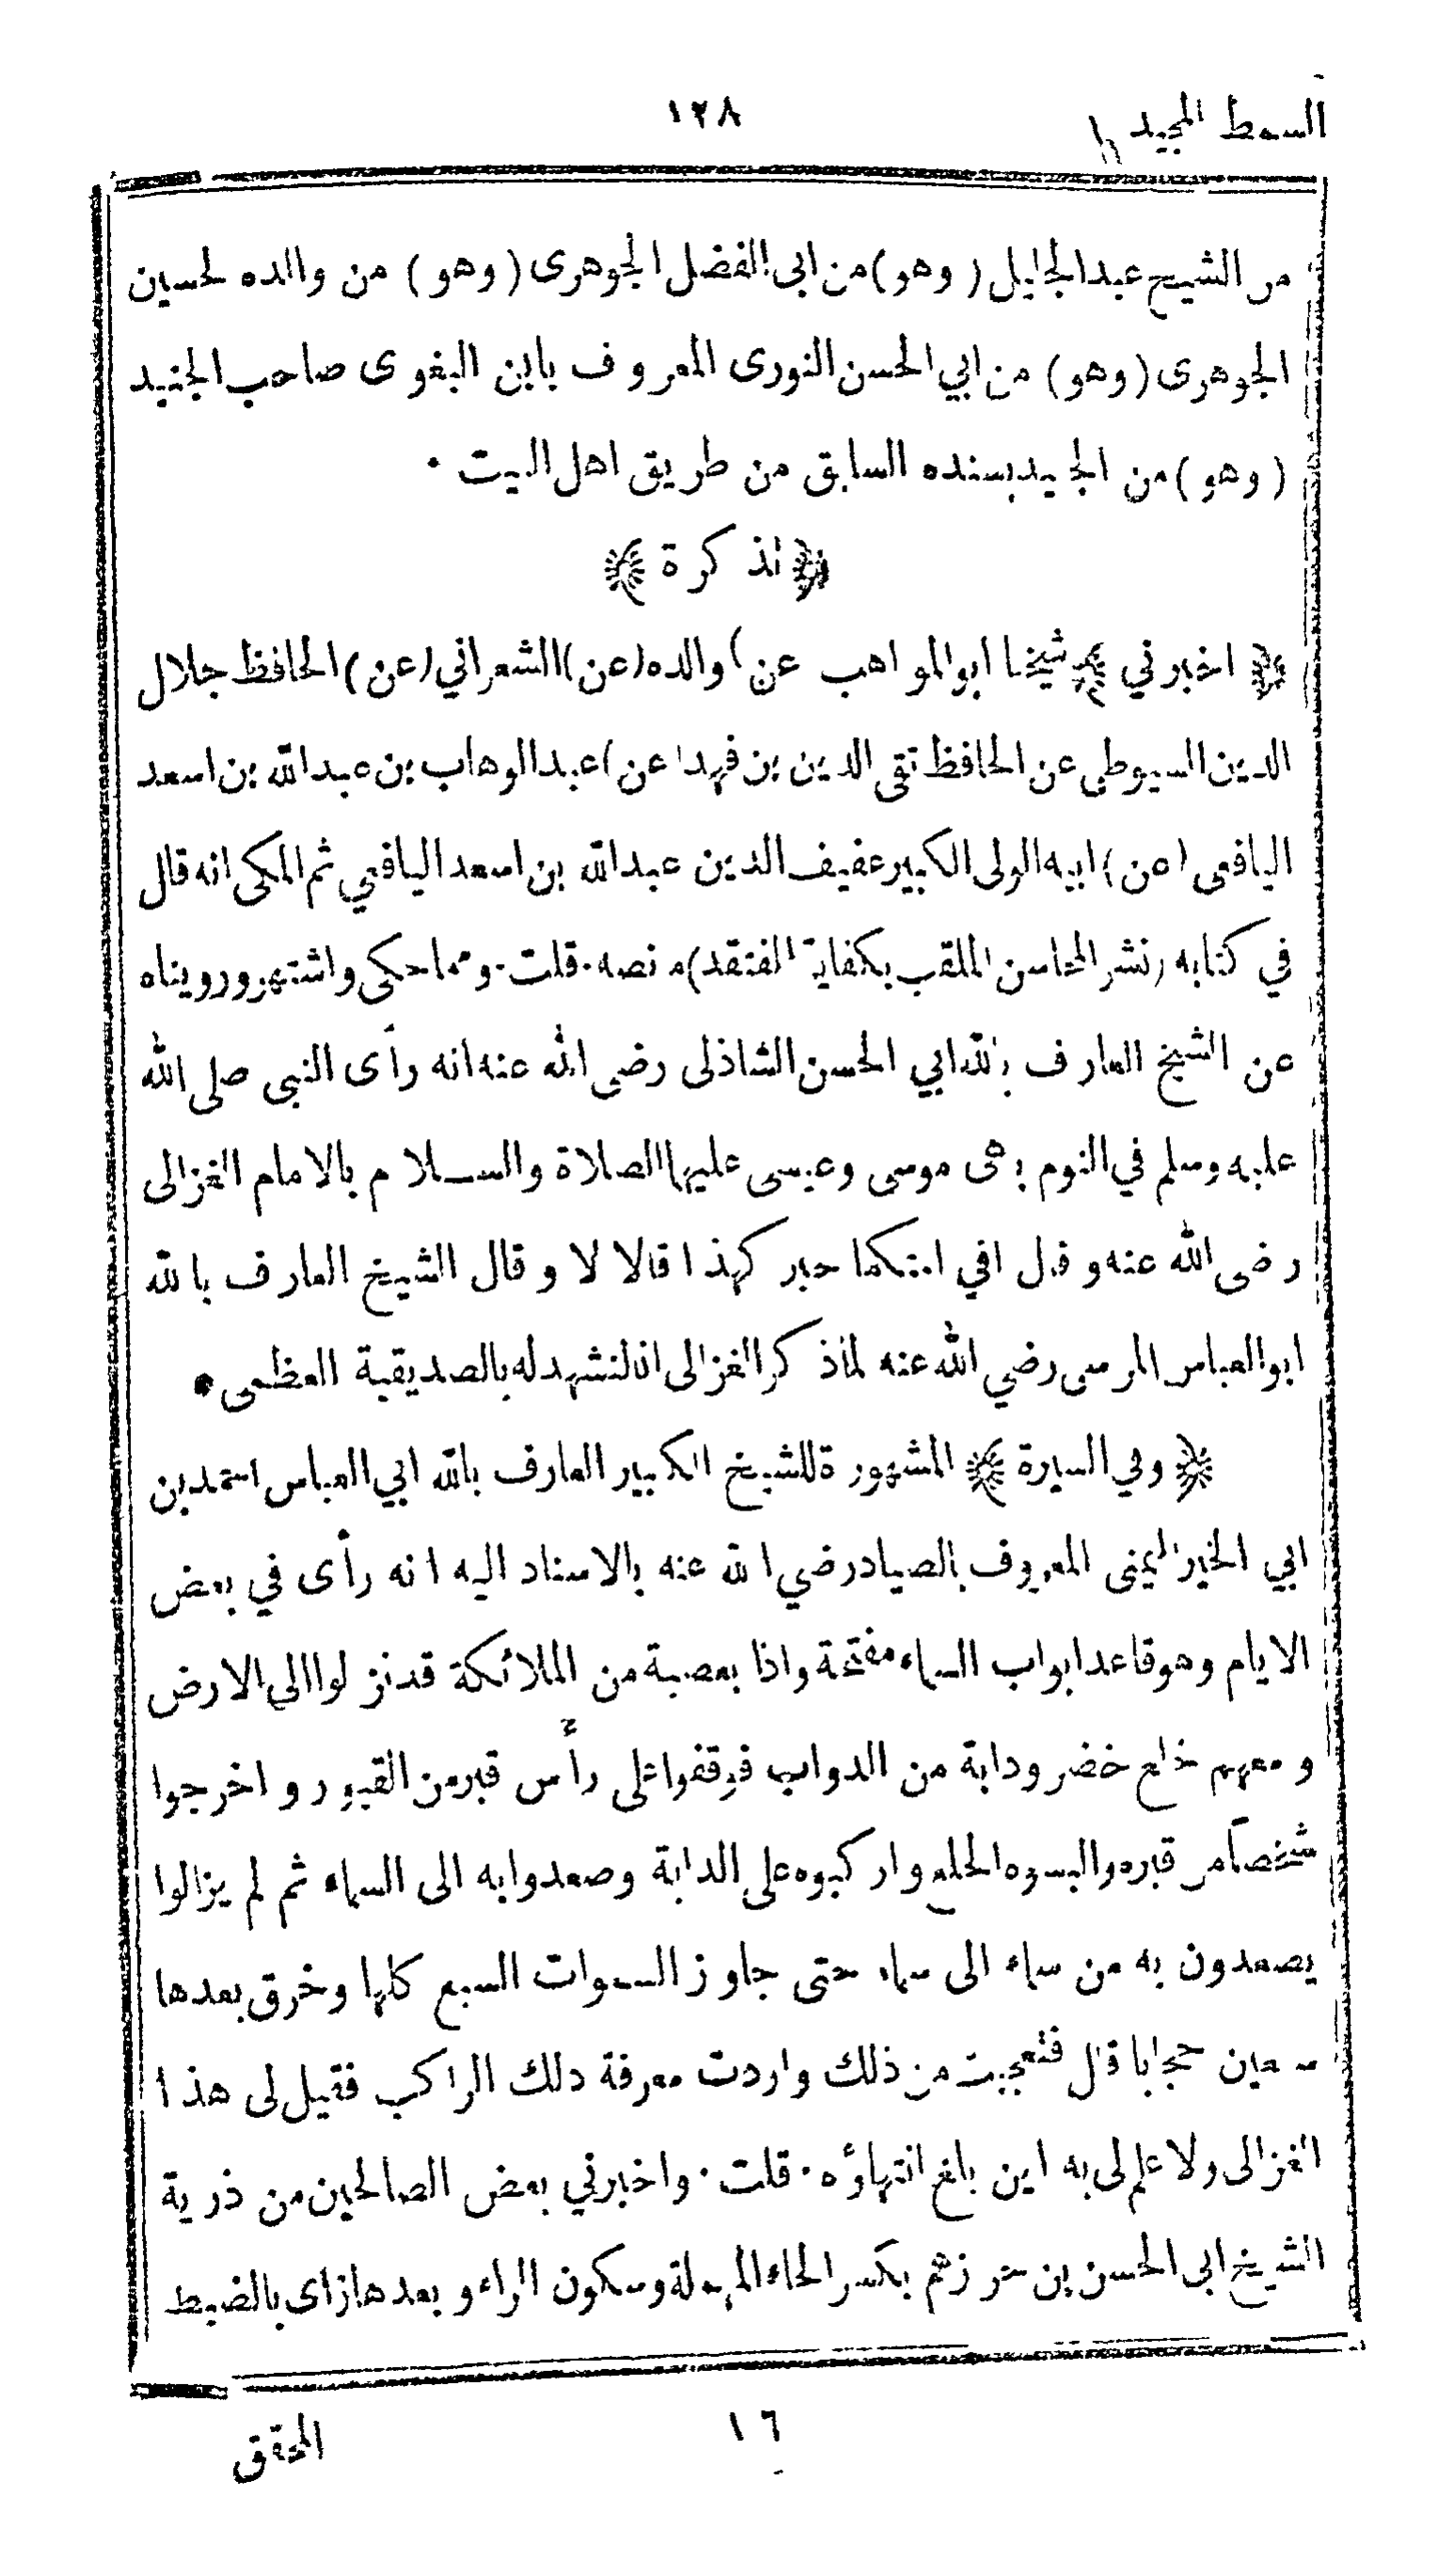 السمط المجيد
١٢٨
من الشيخ عبد الجليل ( وهو ) من ابى الفضل الجوهرى ( وهو ) من والده لحسين
الجوهرى ( وهو ) من ابي الحسن النورى المعروف بابن البغوى صاحب الجنيد
( وهو ) من الجنيد بسنده السابق من طريق اهل البيت ٠
﴿ تذكرة ﴾
﴿ اخبرني ﴾ شيخنا ابو المواهب عن ) والده ( عن ) الشعراني ( عن ) الحافظ جلال
الدين السيوطى عن الحافظ تقى الدين بن فهد ( عن ) عبد الوهاب بن عبد الله بن اسعد
اليافعى ( عن ) ابيه الولى الكبير عفيف الدين عبد الله بن اسعد اليافعي ثم المكى انه قال
في كتابه ( نشر المحاسن الملقب بكفاية الفتقد ) ما نصه ٠ قلت ٠ ومما حكى واشتهر ورويناه
عن الشيخ العارف بالله ابي الحسن الشاذلى رضى الله عنه انه رأى النبى صلى الله
عليه وسلم في النوم باهى موسى وعيسى عليهما الصلاة والسلام بالامام الغزالى
رضى الله عنه و قال افي امتكما حبر كهذا قالا لا و قال الشيخ العارف بالله
ابو العباس المرسى رضي الله عنه لما ذكر الغزالى انا لنشهد له بالصديقية العظمى •
﴿ وفي السيرة ﴾ المشهورة للشيخ الكبير العارف بالله ابي العباس احمد بن
ابي الخير اليمنى المعروف بالصياد رضي الله عنه بالاسناد اليه انه رأى في بعض
الايام وهو قاعد ابواب السماء مفتحة واذا بعصبة من الملائكة قد نزلوا الى الارض
و معهم خلع خضر و دابة من الدواب فوقفوا على رأس قبر من القبور و اخرجوا
شخصاً من قبره والبسوه الحلع واركبوه على الدابة وصعدوا به الى السماء ثم لم يزالوا
يصعدون به من سماء الى سماء حتى جاوز السموات السبع كلها وخرق بعدها
سبعين حجابا قال فتعجبت من ذلك واردت معرفة ذلك الراكب فقيل لى هذا
الغزالى ولا علم لى به اين بلغ انتهاؤه ٠ قلت ٠ واخبرني بعض الصالحين من ذرية
الشيخ ابى الحسن بن حرزهم بكسر الحاء المهملة وسكون الراء و بعدها زاى بالضبط
١٦
المحقق